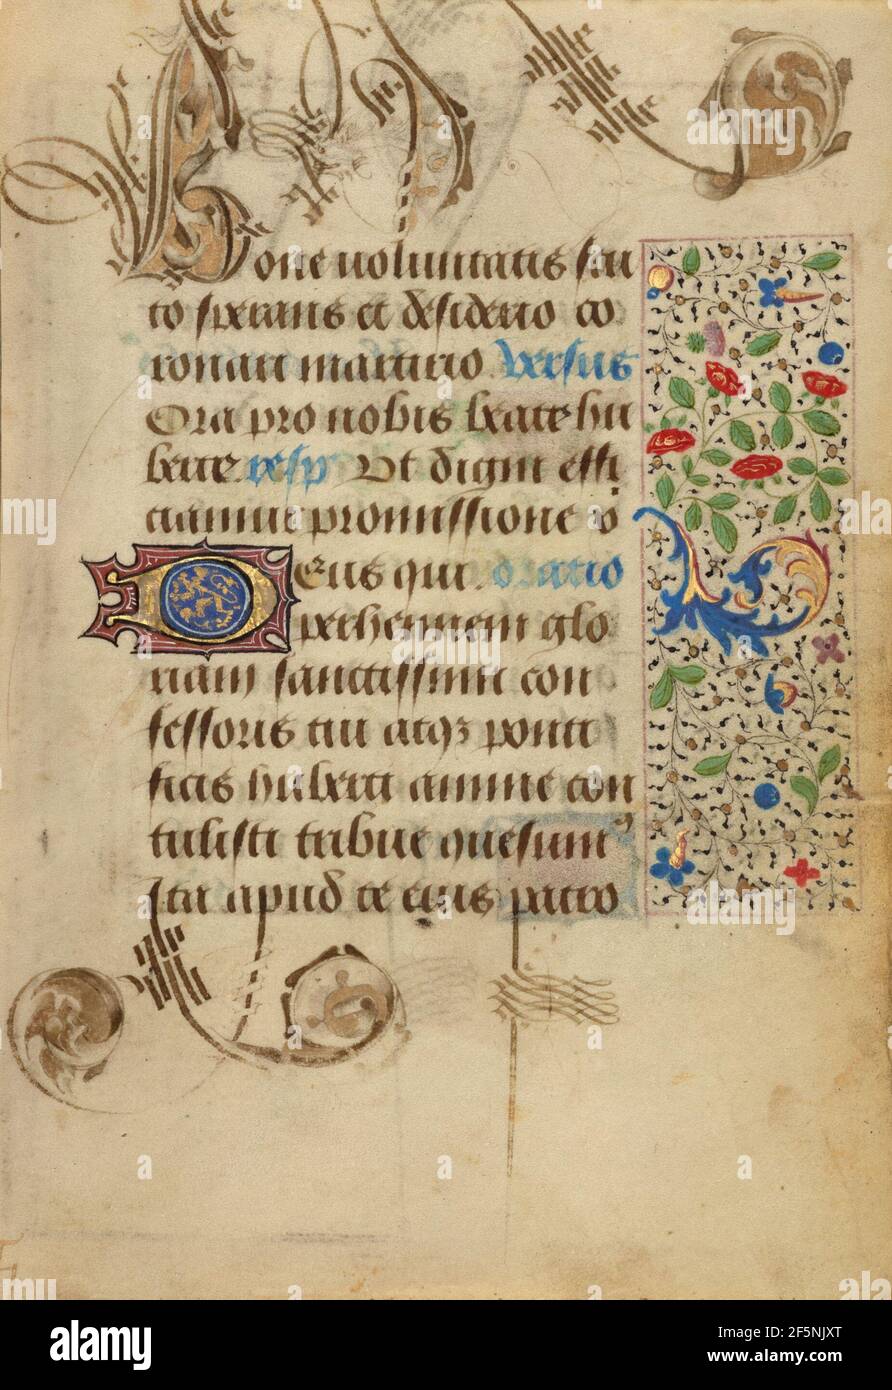 Bone voluntatis sta
to sperans et desiderio co
ronari martirio. versus
Ora pro nobis beate hu
berte. resp Ut digni effi
ciamur promissione
Deus qui. oratio
perhennem glo
riam sanctissimi con
fessoris tui atqz ponti
ficis huberti anime con
tulisti tribue quesumꝰ
Ita apud te eius patro
alamy
Image ID: 2F5NJXT
www.alamy.com